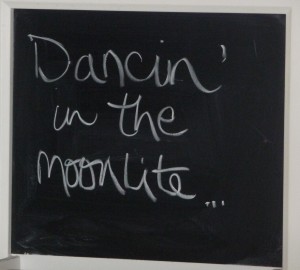 Dancin'
in the
moonlite...